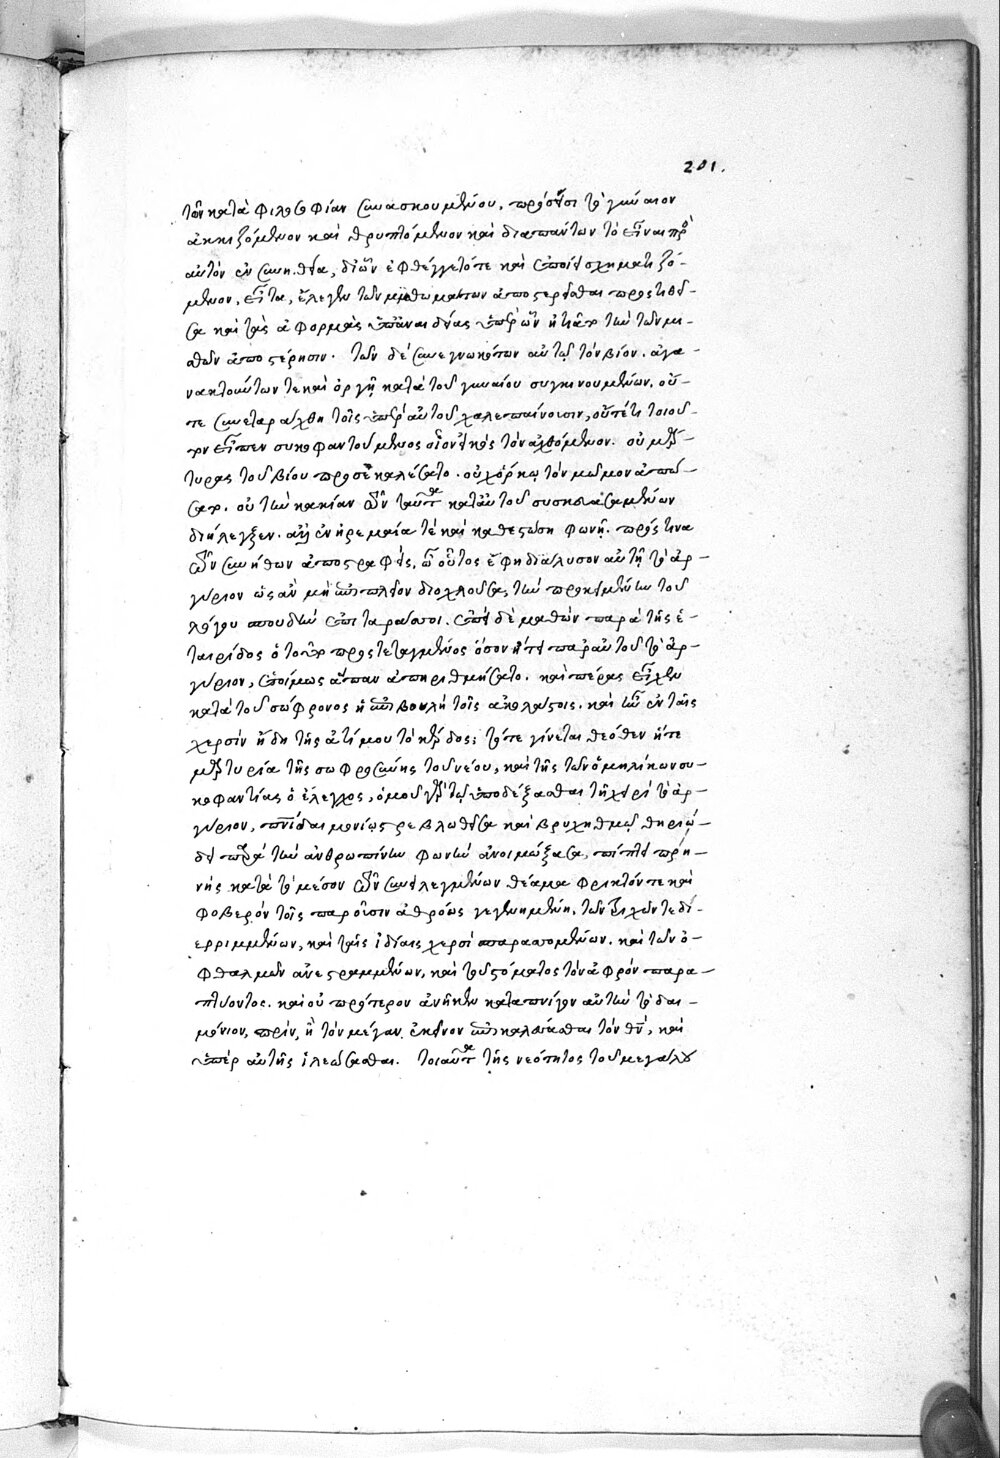 201.
τῶν κατὰ φιλοσοφίαν συνασκουμένου, πρόσεισι τὸ γύναιον
ἀκκιζόμενον καὶ θρυπτόμενον καὶ διαπάντων τὸ εἶναι πρὸς
αὐτὸν ἐν συνηθεία, δι' ὧν ἐφθέγγετό τε καὶ ἐποίει σχηματιζό-
μενον, εἶτα, ἔλεγεν τῶν μισθωμάτων ἀποστερεῖσθαι προστιθεῖ-
σα καὶ τὰς ἀφορμὰς ὑπ' ἀναιδείας ὑπὲρ ὧν ἦν τὴν τῶν μι-
σθῶν ἀποστέρησιν. τῶν δὲ συνεγνωκότων αὐτῷ τὸν βίον. ἀγα-
νακτούντων τε καὶ ὀργῇ κατὰ τοῦ γυναίου συγκινουμένων, οὔ-
τε συνεταράχθη τοῖς ὑπὲρ αὐτοῦ χαλεπαίνουσιν, οὔτέ τι τοιοῦ-
τον εἶπεν συκοφαντούμενος οἷον εἰκὸς τὸν ἀχθόμενον. οὐ μάρ-
τυρας τοῦ βίου προσεκαλέσατο. οὐχ ὅρκῳ τὸν μῶμον ἀπώ-
σατο. οὐ τὴν κακίαν τῶν ταῦτα κατ' αὐτοῦ συσκευασαμένων
διήλεγξεν. ἀλλ' ἐν ἠρεμαία τε καὶ καθεστώση φωνῇ. πρός τινα
τῶν συνήθων ἀποστραφείς, ὦ οὗτος ἔφη διάλυσον αὐτῇ τὸ ἀρ-
γύριον ὡς ἂν μὴ ἐπιπλέον διοχλοῦσα, τὴν προκειμένην τοῦ
λόγου σπουδὴν ἐπιταράσσοι. ἐπεὶ δὲ μαθὼν παρὰ τῆς ἑ-
ταιρίδος ὁ τοῦτο προστεταγμένος ὅσον ᾔτει παρ' αὐτοῦ τὸ ἀρ-
γύριον, ἑτοίμως ἅπαν ἀπηριθμήσατο. καὶ πέρας εἶχεν
κατὰ τοῦ σώφρονος ἡ ἐπιβουλὴ τοῖς ἀκολάστοις. καὶ ἦν ἐν ταῖς
χερσὶν ἤδη τῆς ἀτίμου τὸ κέρδος; τότε γίνεται θεόθεν ἥ τε
μαρτυρία τῆς σωφροσύνης τοῦ νέου, καὶ τῆς τῶν ὁμηλίκων συ-
κοφαντίας ὁ ἔλεγχος, ὁμοῦ γὰρ τῷ ὑποδέξασθαι τῇ χειρὶ τὸ ἀρ-
γύριον, πν(εύματ)ι δαιμονίῳ στρεβλωθεῖσα καὶ βρυχηθμῷ θηριώ-
δει παρὰ τὴν ἀνθρωπίνην φωνὴν ἀνοιμώξασα, πίπτει πρη-
νὴς κατὰ τὸ μέσον τῶν συνειλεγμένων θέαμα φρικτόν τε καὶ
φοβερὸν τοῖς παροῦσιν ἀθρόως γεγενημένη, τῶν τριχῶν τε δι-
ερριμμένων, καὶ ταῖς ἰδίαις χερσὶ σπαρασσομένων. καὶ τῶν ὀ-
φθαλμῶν ἀνεστραμμένων, καὶ τοῦ στόματος τὸν ἀφρὸν παρα-
πτύοντος. καὶ οὐ πρότερον ἀνῆκεν καταπνίγον αὐτὴν τὸ δαι-
μόνιον, πρὶν, ἢ τὸν μέγαν ἐκεῖνον ἐπικαλέσασθαι τὸν θν̄, καὶ
ὑπὲρ αὐτῆς ἱλεώσασθαι. τοιαῦτα τῆς νεότητος τοῦ μεγάλου